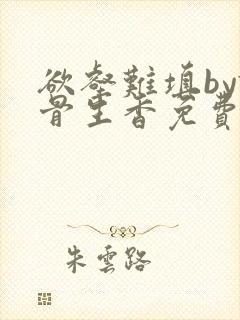 欲壑難填by
骨生香免費
朱雲路